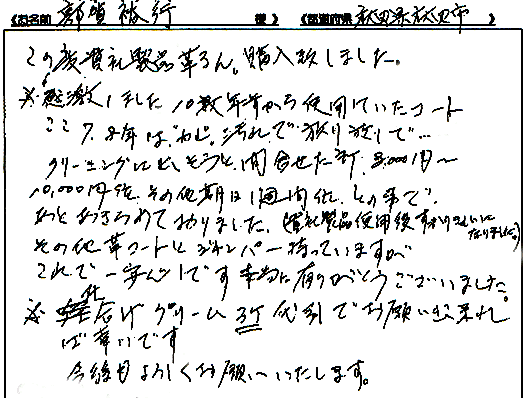 《お名前 行 様 《都道府県 秋田県秋田市 》
この度貴社製品革るん。購入致しました。
※感激しました 10数年前から使用していたコート
ここ7.8年は 汚れで放り放しで…
クリーニングに出そうと、問合せた所、8,000円〜
10,000円位、その他期日1週間位、との事で、
あきらめておりました。(貴社製品使用後すっかりきれいになりました。)
その他革コートとジャンパー持っていますが
これで一安心です 本当に有りがとうございました。
※ 仕上げクリーム 3ケ 代引でお願い出来れ
ば幸いです
今後もよろしくお願いいたします。